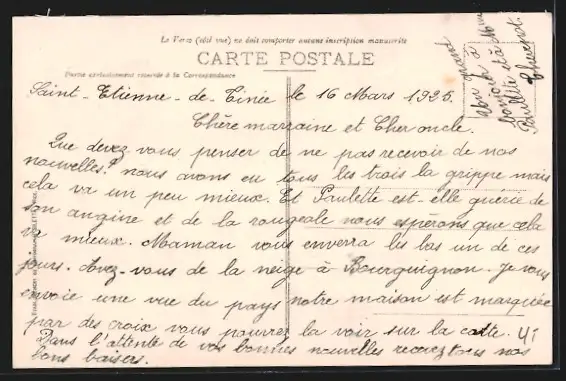 Le Verso (côté vue) ne doit comporter aucune inscription manuscrite
CARTE POSTALE
Partie exclusivement réservée à la Correspondance
Saint-Etienne-de-Tinée le 16 Mars 1925.
Chère marraine et Cher oncle.
Que devez vous penser de ne pas recevoir de nos
nouvelles? nous avons eu tous les trois la grippe mais
cela va un peu mieux. Et Paulette est-elle guérie de
son angine et de la rougeole nous espérons que cela
va mieux. Maman vous enverra les bas un de ces
jours. Avez-vous de la neige à Bourguignon. Je vous
envoie une vue du pays notre maison est masquée
par des croix vous pourrez la voir sur la catte.
Dans l'attente de vos bonnes nouvelles recevez tous nos
bons baisers.
grand
bonjour à Mme
Paulette et à
Thevenot.